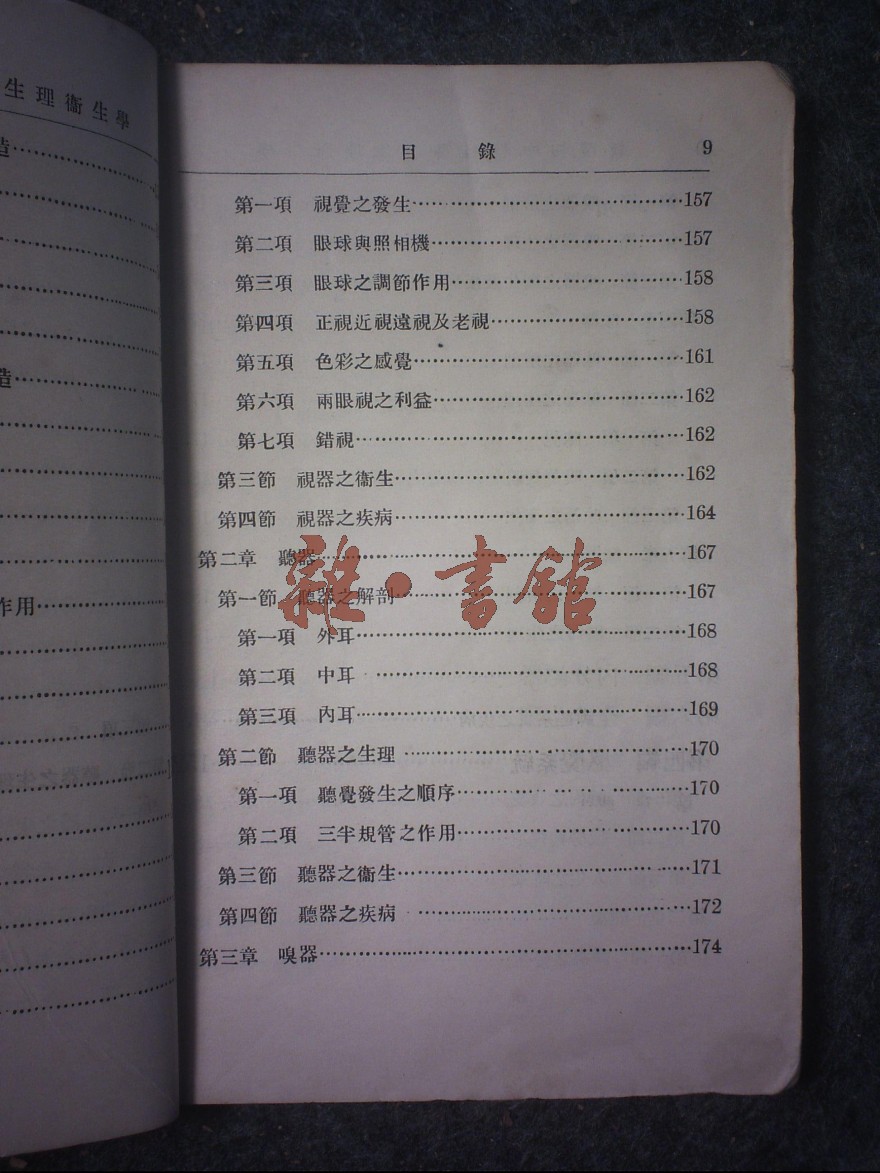 生理衞生學
造
造
作用
目錄 9
第一項 視覺之發生 157
第二項 眼球與照相機 157
第三項 眼球之調節作用 158
第四項 正視近視遠視及老視 158
第五項 色彩之感覺 161
第六項 兩眼視之利益 162
第七項 錯視 162
第三節 視器之衞生 162
第四節 視器之疾病 164
第二章 聽器 167
第一節 聽器之解剖 167
雜·書館
第一項 外耳 168
第二項 中耳 168
第三項 內耳 169
第二節 聽器之生理 170
第一項 聽覺發生之順序 170
第二項 三半規管之作用 170
第三節 聽器之衞生 171
第四節 聽器之疾病 172
第三章 嗅器 174